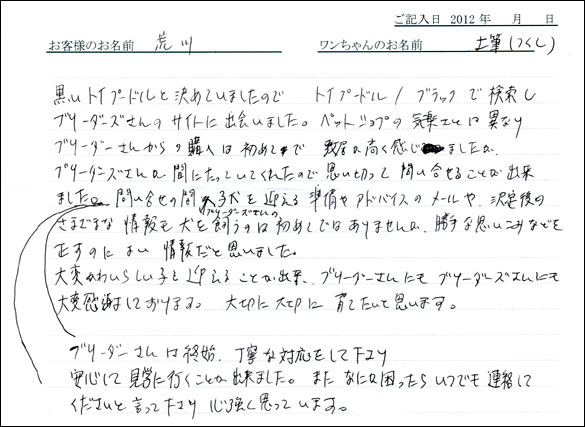 ご記入日 2012 年　　月　　日
お客様のお名前　荒川　　ワンちゃんのお名前　土筆(つくし)
黒いトイプードルと決めていましたので　トイプードル / ブラックで検索し
ブリーダーズさんのサイトに出会いました。ペットショップの気楽さとは異なり
ブリーダーさんからの購入は初めてで　敷居が高く感じましたが、
ブリーダーズさんが間にたっていてくれたので思い切って問い合せることが出来
ました。問い合せの間、子犬を迎える準備やアドバイスのメールや、決定後の
ブリーダーズさんの
さまざまな情報も犬を飼うのは初めてではありませんが、勝手な思いこみなどを
正すのによい情報だと思いました。
大変かわいらしい子を迎えることが出来、ブリーダーさんにもブリーダーズさんにも
大変感謝しております。大切に大切に育てたいと思います。
ブリーダーさんは終始、丁寧な対応をして下さり
安心して見学に行くことが出来ました。またなにか困ったらいつでも連絡して
くださいと言って下さり心強く思っています。